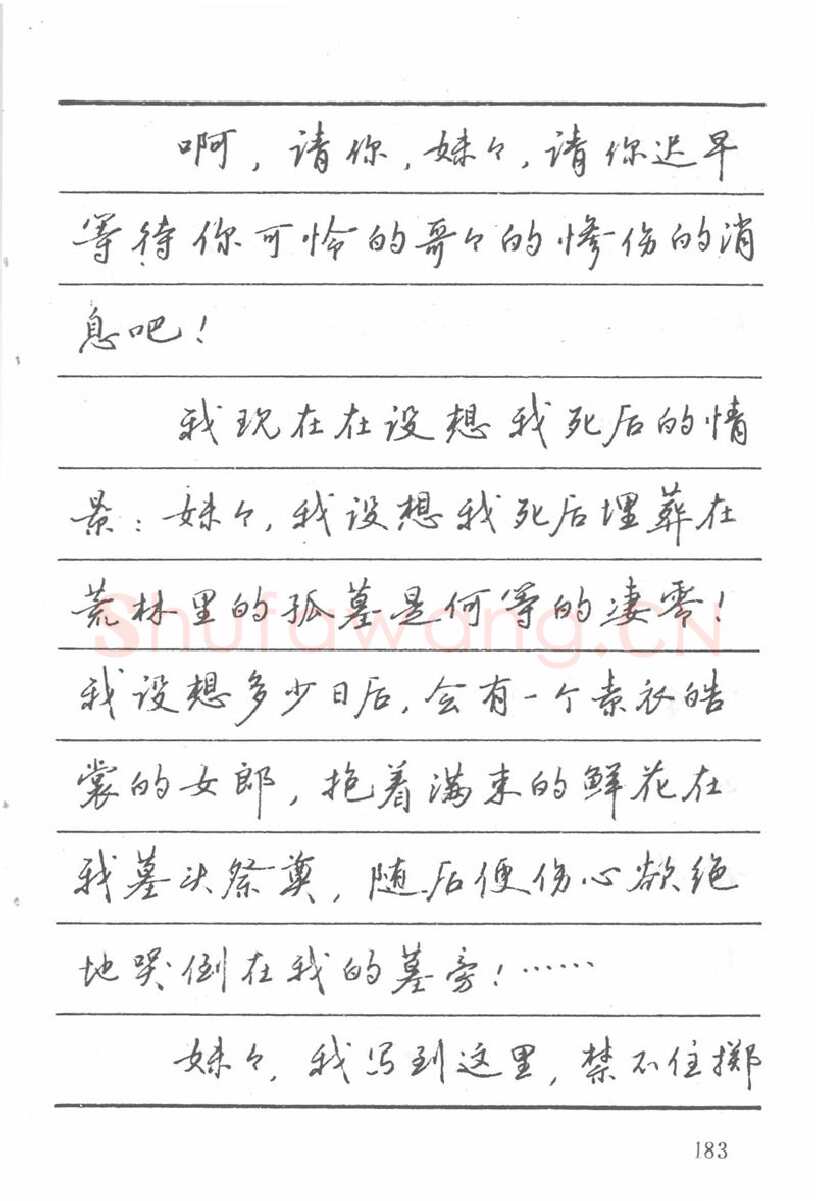 啊，请你，妹々，请你迟早
等待你可怜的哥々的惨伤的消
息吧！
我现在在设想我死后的情
景：妹々，我设想我死后埋葬在
荒林里的孤墓是何等的凄零！
我设想多少日后，会有一个素衣皓
裳的女郎，抱着满束的鲜花在
我墓头祭奠，随后便伤心欲绝
地哭倒在我的墓旁！……
妹々，我写到这里，禁不住掷
183
Shufawang.CN